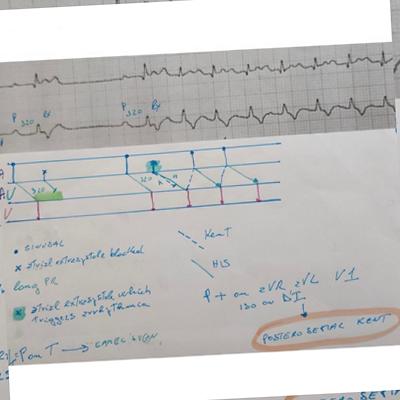 P 320 P 320
A
AV 320 320
V
• SINUSAL
x atrial extrasystole blocked
long PR
x atrial extrasystole which
triggers arrhythmia
P on T →
--- Kent
— HIS
P + on aVR aVL V1
ISO on DI
↓
POSTEROSEPTAL KENT